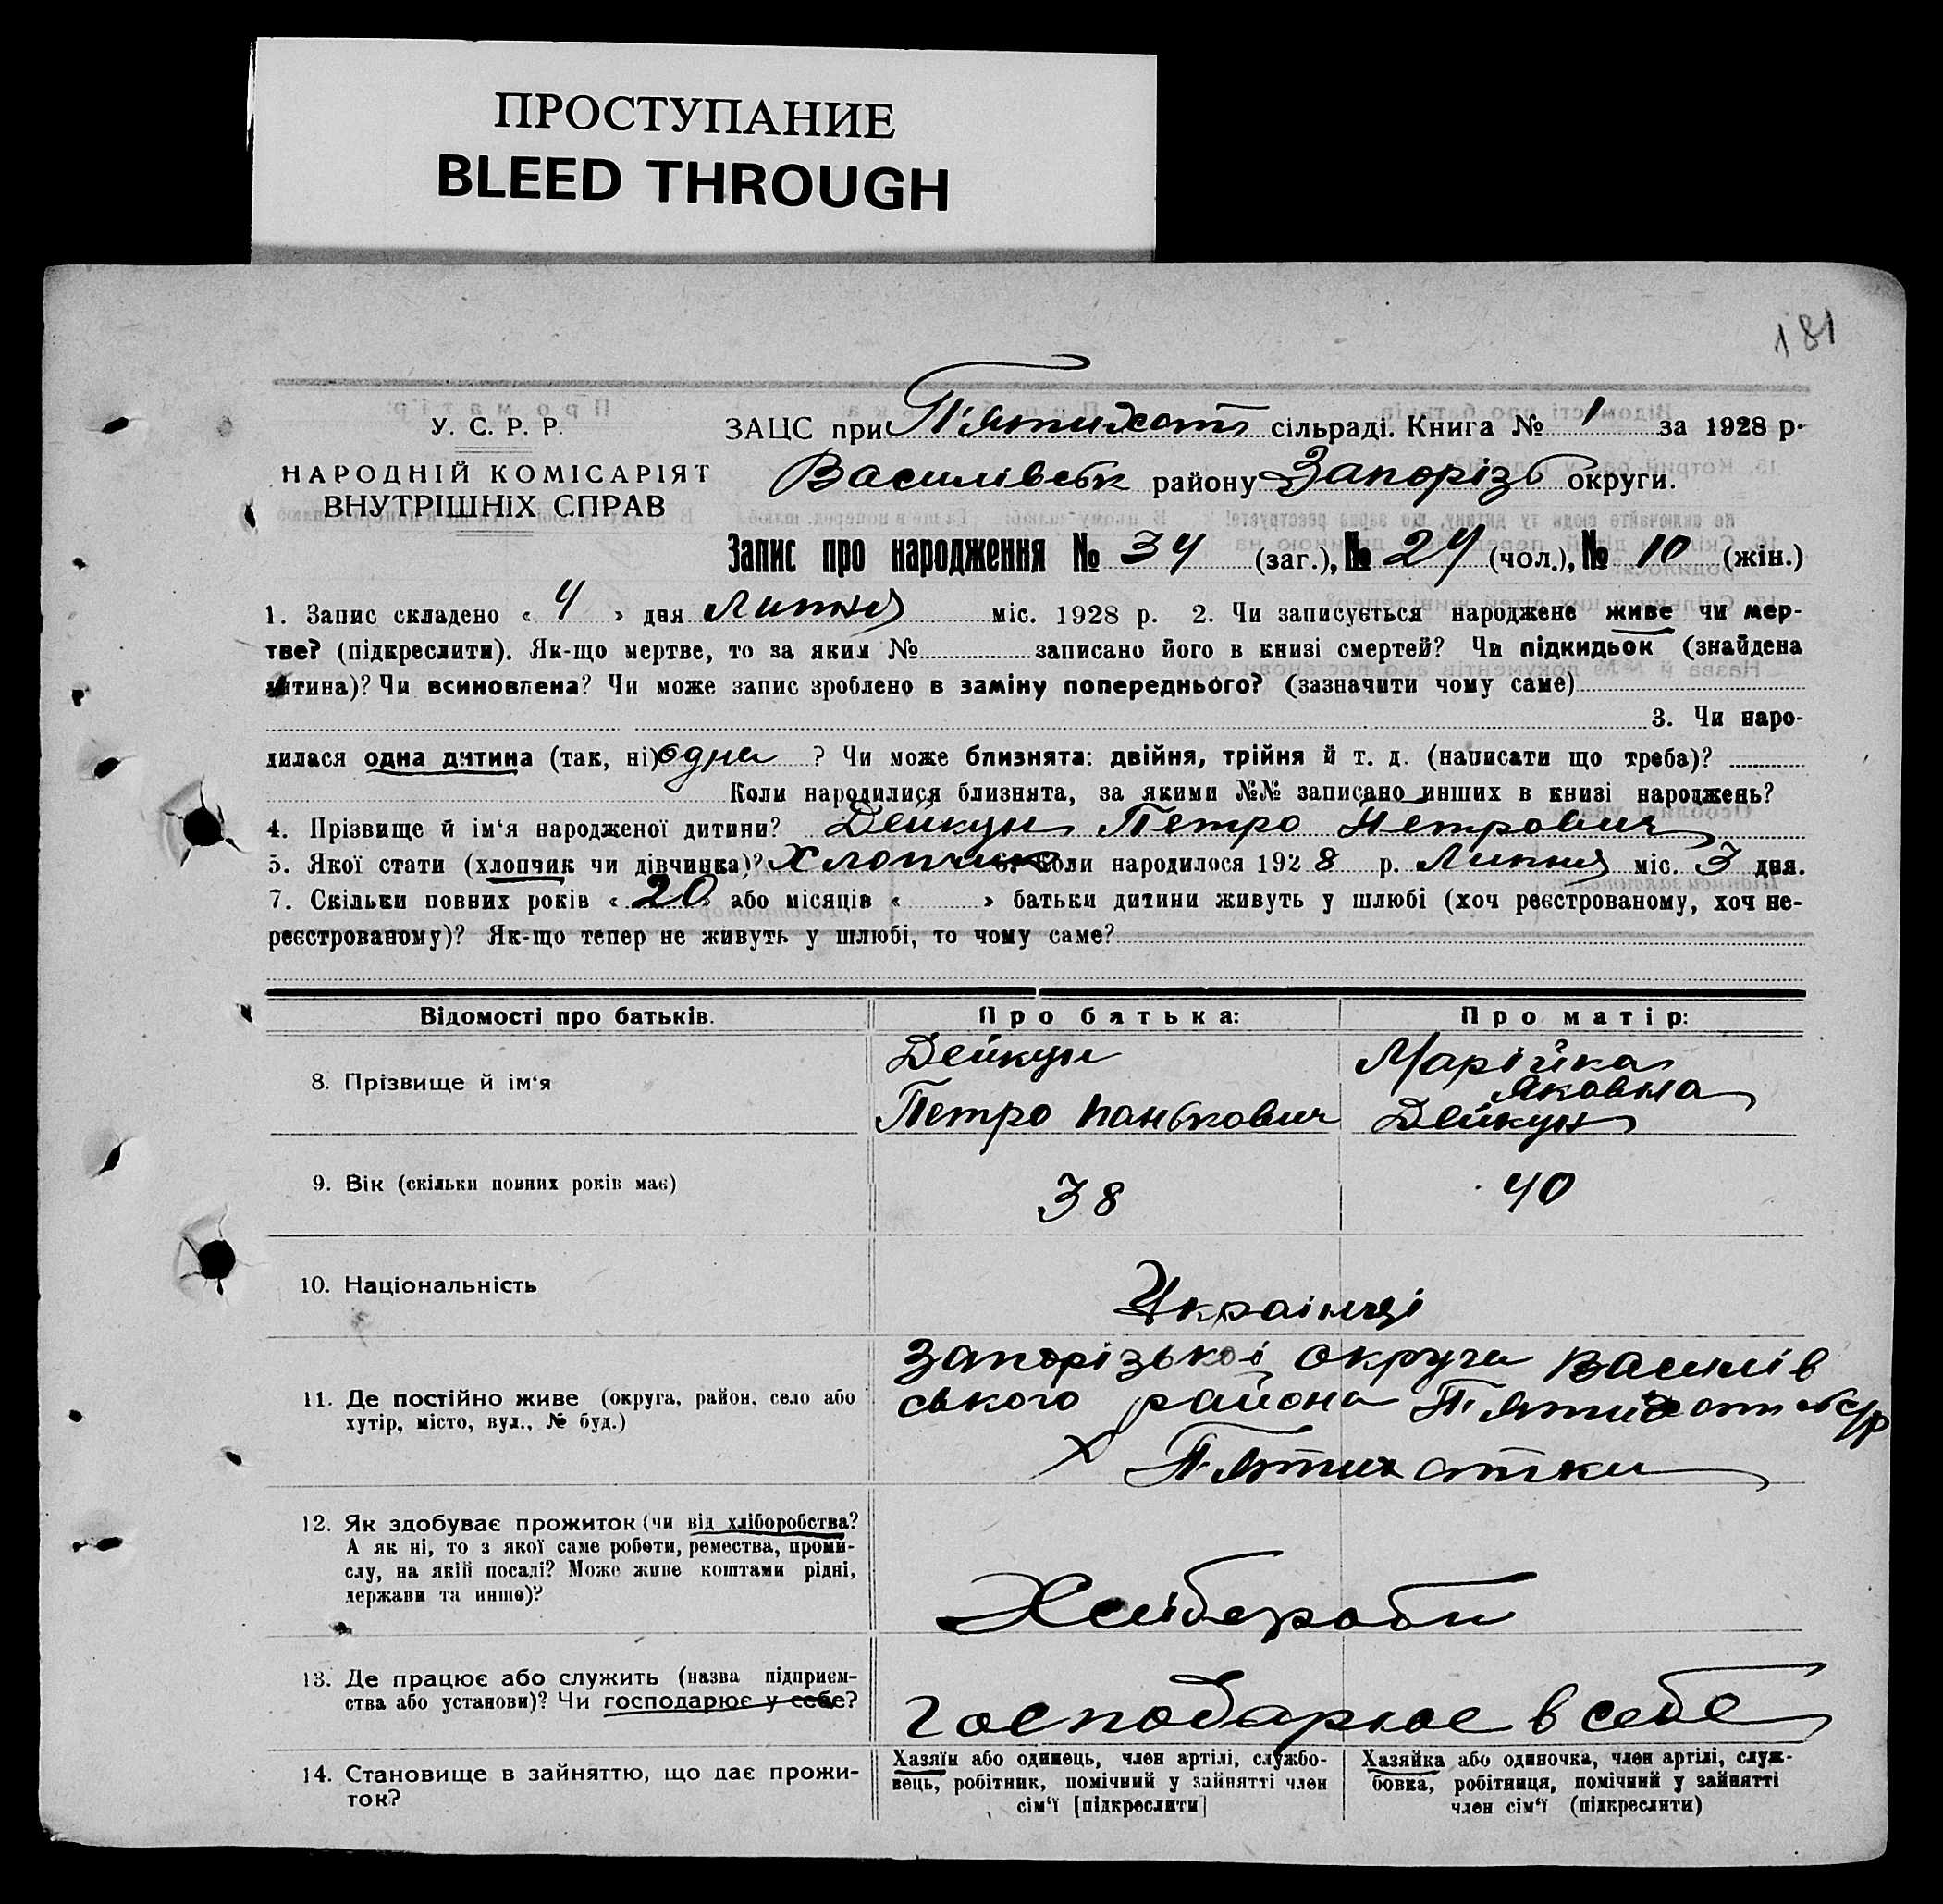 ПРОСТУПАНИЕ
BLEED THROUGH
181
У. С. Р. Р.
НАРОДНІЙ КОМІСАРІЯТ
ВНУТРІШНІХ СПРАВ
ЗАЦС при П'ятихат сільраді. Книга № 1 за 1928 р.
Василівськ району Запорізь округи.
Запис про народження № 34 (заг.), № 24 (чол.), № 10 (жін.)
1. Запис складено « 4 » дня Липня міс. 1928 р. 2. Чи записується народжене живе чи мер-
тве? (підкреслити). Як-що мертве, то за яким № записано його в книзі смертей? Чи підкидьок (знайдена
дитина)? Чи всиновлена? Чи може запис зроблено в заміну попереднього? (зазначити чому саме)
3. Чи наро-
дилася одна дитина (так, ні) одна ? Чи може близнята: двійня, трійня й т. д. (написати що треба)?
Коли народилися близнята, за якими №№ записано инших в книзі народжень?
4. Прізвище й ім'я народженої дитини? Дейкун Петро Петрович
5. Якої стати (хлопчик чи дівчинка)? Хлопчик 6. Коли народилося 1928 р. Липня міс. 3 дня.
7. Скільки повних років « 20 » або місяців « » батьки дитини живуть у шлюбі (хоч реєстрованому, хоч не-
реєстрованому)? Як-що тепер не живуть у шлюбі, то чому саме?
Відомості про батьків. Про батька: Про матір:
8. Прізвище й ім'я
Дейкун
Петро Панькович
Марійка
Яковна
Дейкун
9. Вік (скільки повних років має) 38 40
10. Національність Українці
11. Де постійно живе (округа, район, село або
хутір, місто, вул., № буд.)
Запорізької округи Василів
ського района П'ятихатс/р
х П'ятихатки
12. Як здобуває прожиток (чи від хліборобства?
А як ні, то з якої саме роботи, ремества, проми-
слу, на якій посаді? Може живе коштами рідні,
держави та инше)?
Хлібероби
13. Де працює або служить (назва підприєм-
ства або установи)? Чи господарює у себе?
господарює в себе
14. Становище в зайняттю, що дає прожи-
ток?
Хазяїн або одинець, член артілі, службо-
вець, робітник, помічний у зайнятті член
сім'ї [підкреслити]
Хазяйка або одиночка, член артілі, служ-
бовка, робітниця, помічний у зайнятті
член сім'ї (підкреслити)